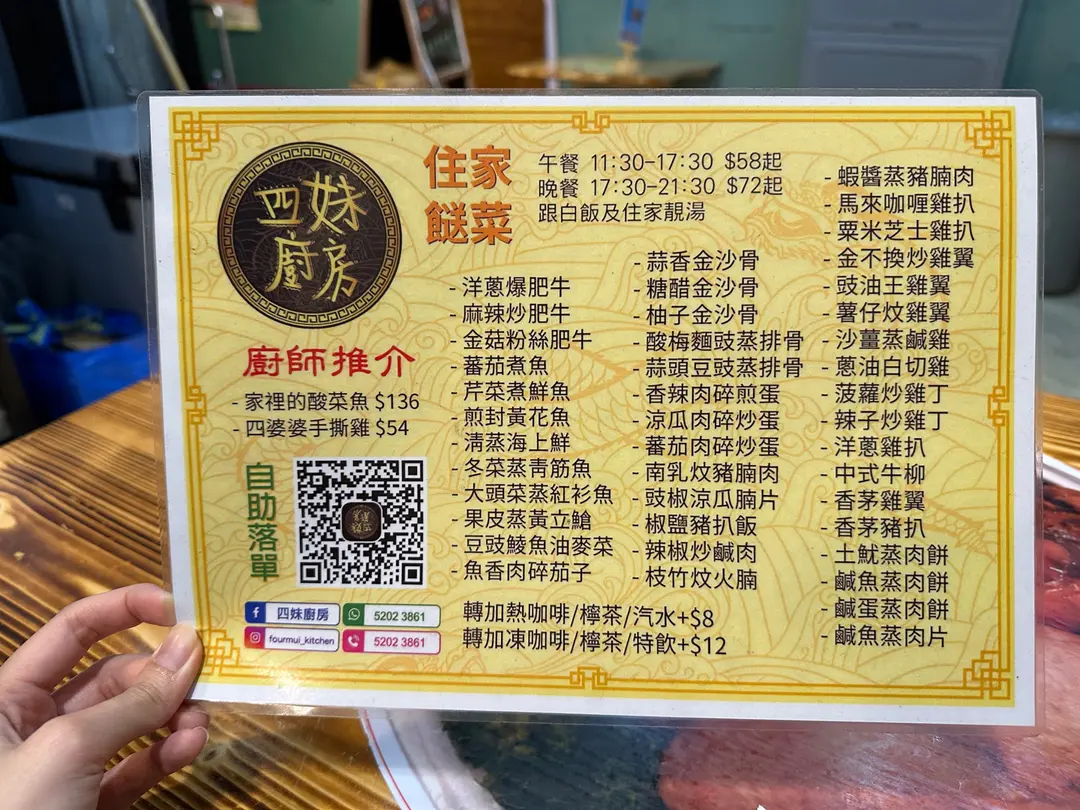 四妹
廚房
住家
餸菜
午餐 11:30-17:30 $58起
晚餐 17:30-21:30 $72起
跟白飯及住家靚湯
廚師推介
- 家裡的酸菜魚 $136
- 四婆婆手撕雞 $54
自助落單
四妹廚房
5202 3861
fourmui_kitchen
5202 3861
- 洋蔥爆肥牛
- 麻辣炒肥牛
- 金菇粉絲肥牛
- 蕃茄煮魚
- 芹菜煮鮮魚
- 煎封黃花魚
- 清蒸海上鮮
- 冬菜蒸青筋魚
- 大頭菜蒸紅衫魚
- 果皮蒸黃立鯧
- 豆豉鯪魚油麥菜
- 魚香肉碎茄子
- 蒜香金沙骨
- 糖醋金沙骨
- 柚子金沙骨
- 酸梅麵豉蒸排骨
- 蒜頭豆豉蒸排骨
- 香辣肉碎煎蛋
- 涼瓜肉碎炒蛋
- 蕃茄肉碎炒蛋
- 南乳炆豬腩肉
- 豉椒涼瓜腩片
- 椒鹽豬扒飯
- 辣椒炒鹹肉
- 枝竹炆火腩
- 蝦醬蒸豬腩肉
- 馬來咖喱雞扒
- 粟米芝士雞扒
- 金不換炒雞翼
- 豉油王雞翼
- 薯仔炆雞翼
- 沙薑蒸鹹雞
- 蔥油白切雞
- 菠蘿炒雞丁
- 辣子炒雞丁
- 洋蔥雞扒
- 中式牛柳
- 香茅雞翼
- 香茅豬扒
- 土魷蒸肉餅
- 鹹魚蒸肉餅
- 鹹蛋蒸肉餅
- 鹹魚蒸肉片
轉加熱咖啡/檸茶/汽水+$8
轉加凍咖啡/檸茶/特飲+$12